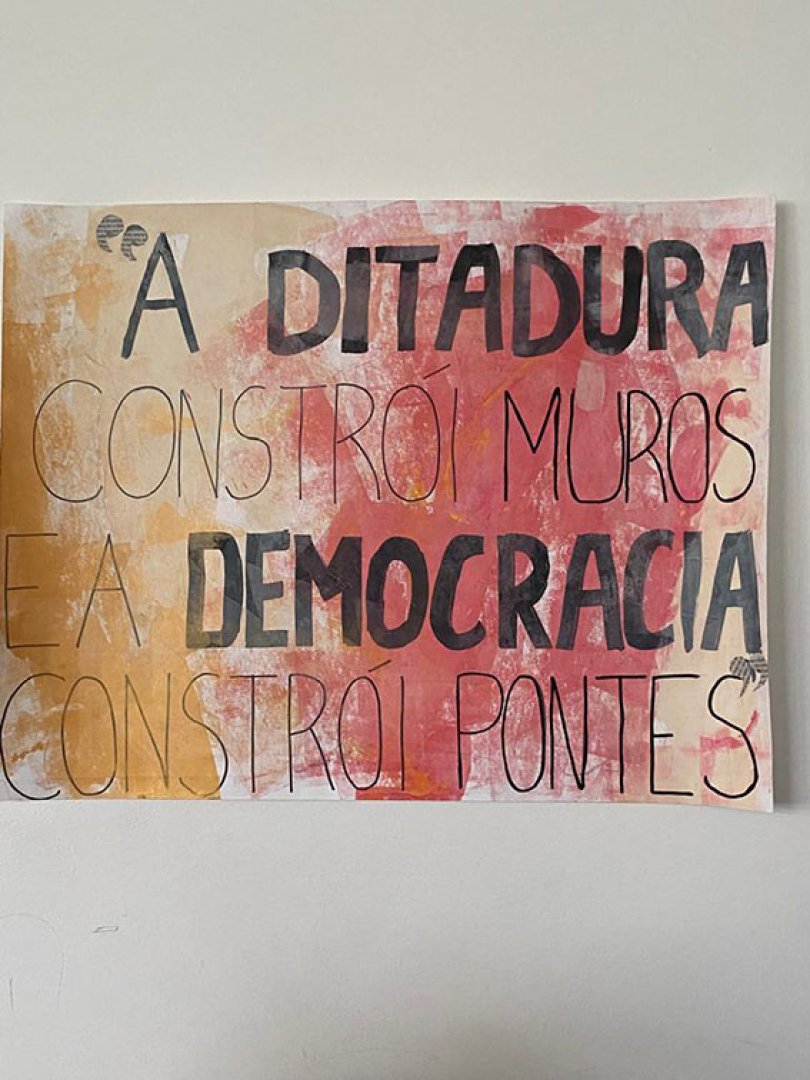 “A DITADURA
CONSTRÓI MUROS
E A DEMOCRACIA
CONSTRÓI PONTES”